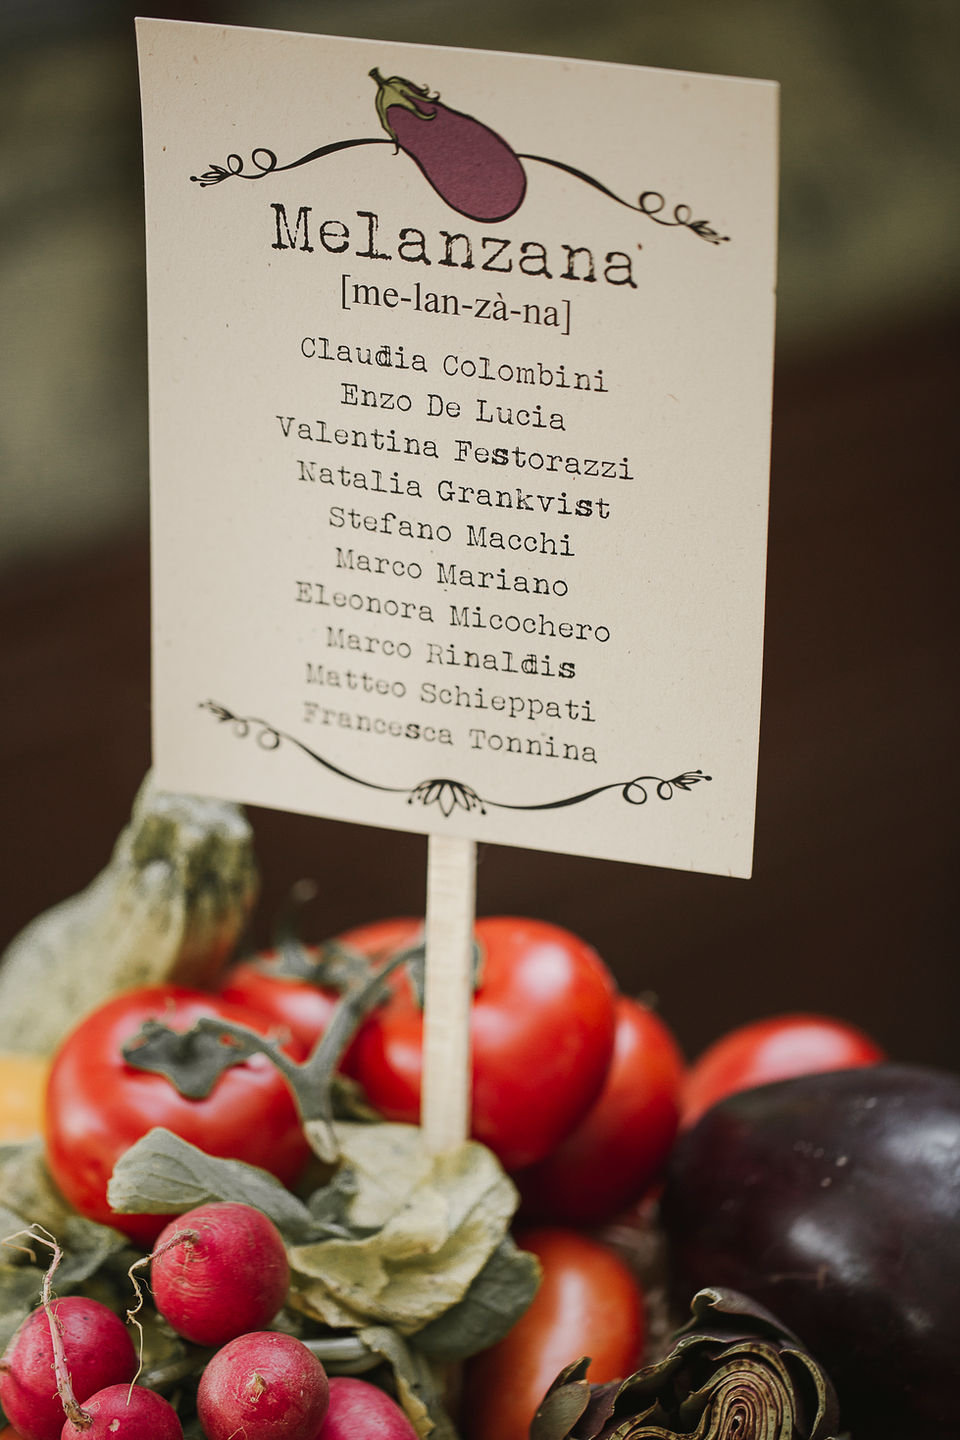 Melanzana
[me-lan-zà-na]
Claudia Colombini
Enzo De Lucia
Valentina Festorazzi
Natalia Grankvist
Stefano Macchi
Marco Mariano
Eleonora Micochero
Marco Rinaldis
Matteo Schieppati
Francesca Tonnina